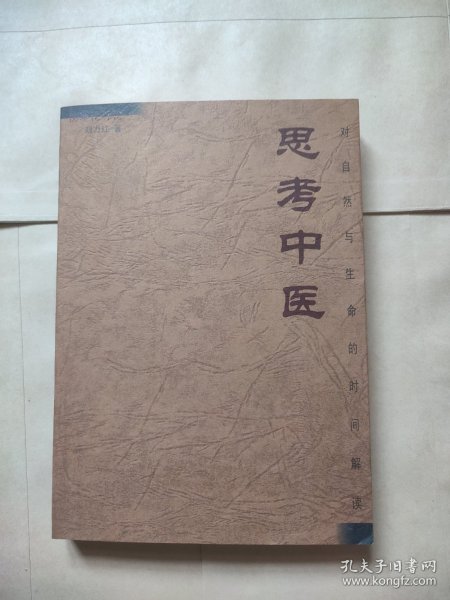 刘力红 著
思考中医
对自然与生命的时间解读
孔夫子旧书网
www.kongfz.com